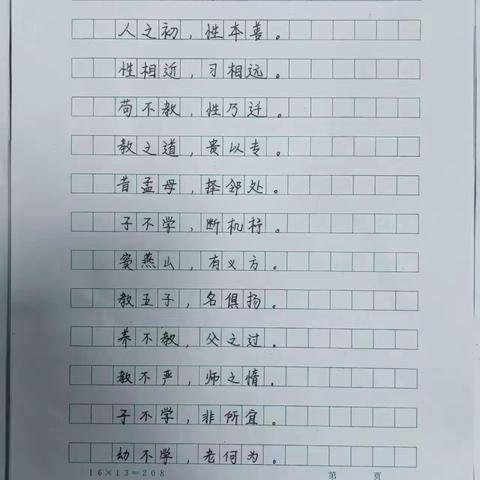 人之初，性本善。
性相近，习相远。
苟不教，性乃迁。
教之道，贵以专。
昔孟母，择邻处。
子不学，断机杼。
窦燕山，有义方。
教五子，名俱扬。
养不教，父之过。
教不严，师之惰。
子不学，非所宜。
幼不学，老何为。
16×13=208 第 页